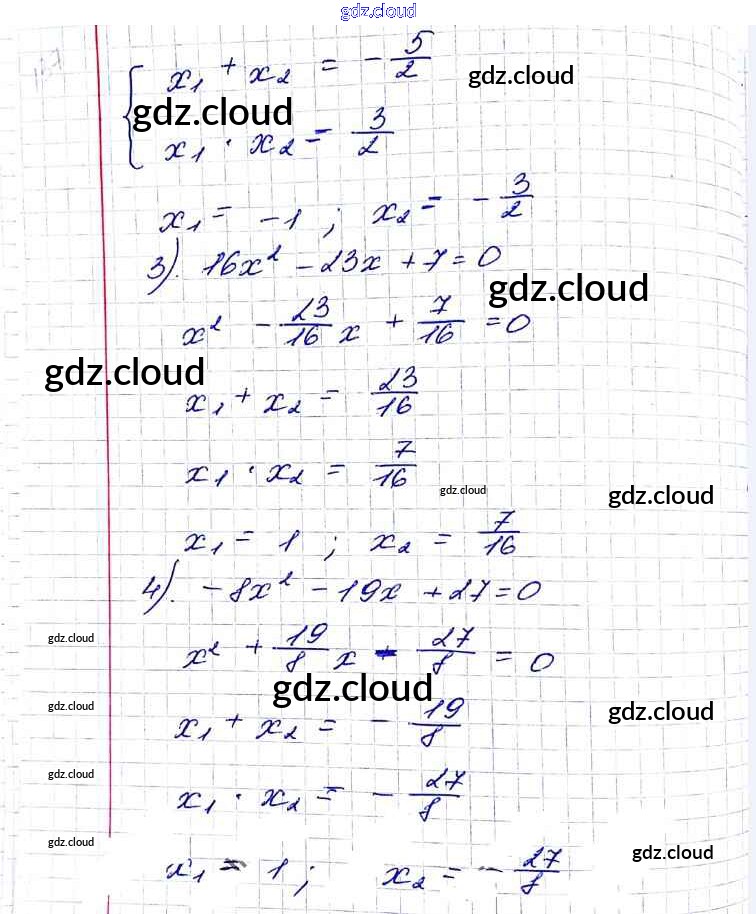 gdz.cloud
x₁ + x₂ = -5/2
gdz.cloud
gdz.cloud
x₁ · x₂ = 3/2
x₁ = -1 ; x₂ = -3/2
3). 16x² - 23x + 7 = 0
gdz.cloud
x² - 23/16 x + 7/16 = 0
gdz.cloud
x₁ + x₂ = 23/16
x₁ · x₂ = 7/16
gdz.cloud
gdz.cloud
x₁ = 1 ; x₂ = 7/16
4). -8x² - 19x + 27 = 0
gdz.cloud
x² + 19/8 x - 27/8 = 0
gdz.cloud
gdz.cloud
gdz.cloud
x₁ + x₂ = -19/8
gdz.cloud
x₁ · x₂ = -27/8
gdz.cloud
gdz.cloud
x₁ = 1 ; x₂ = -27/8